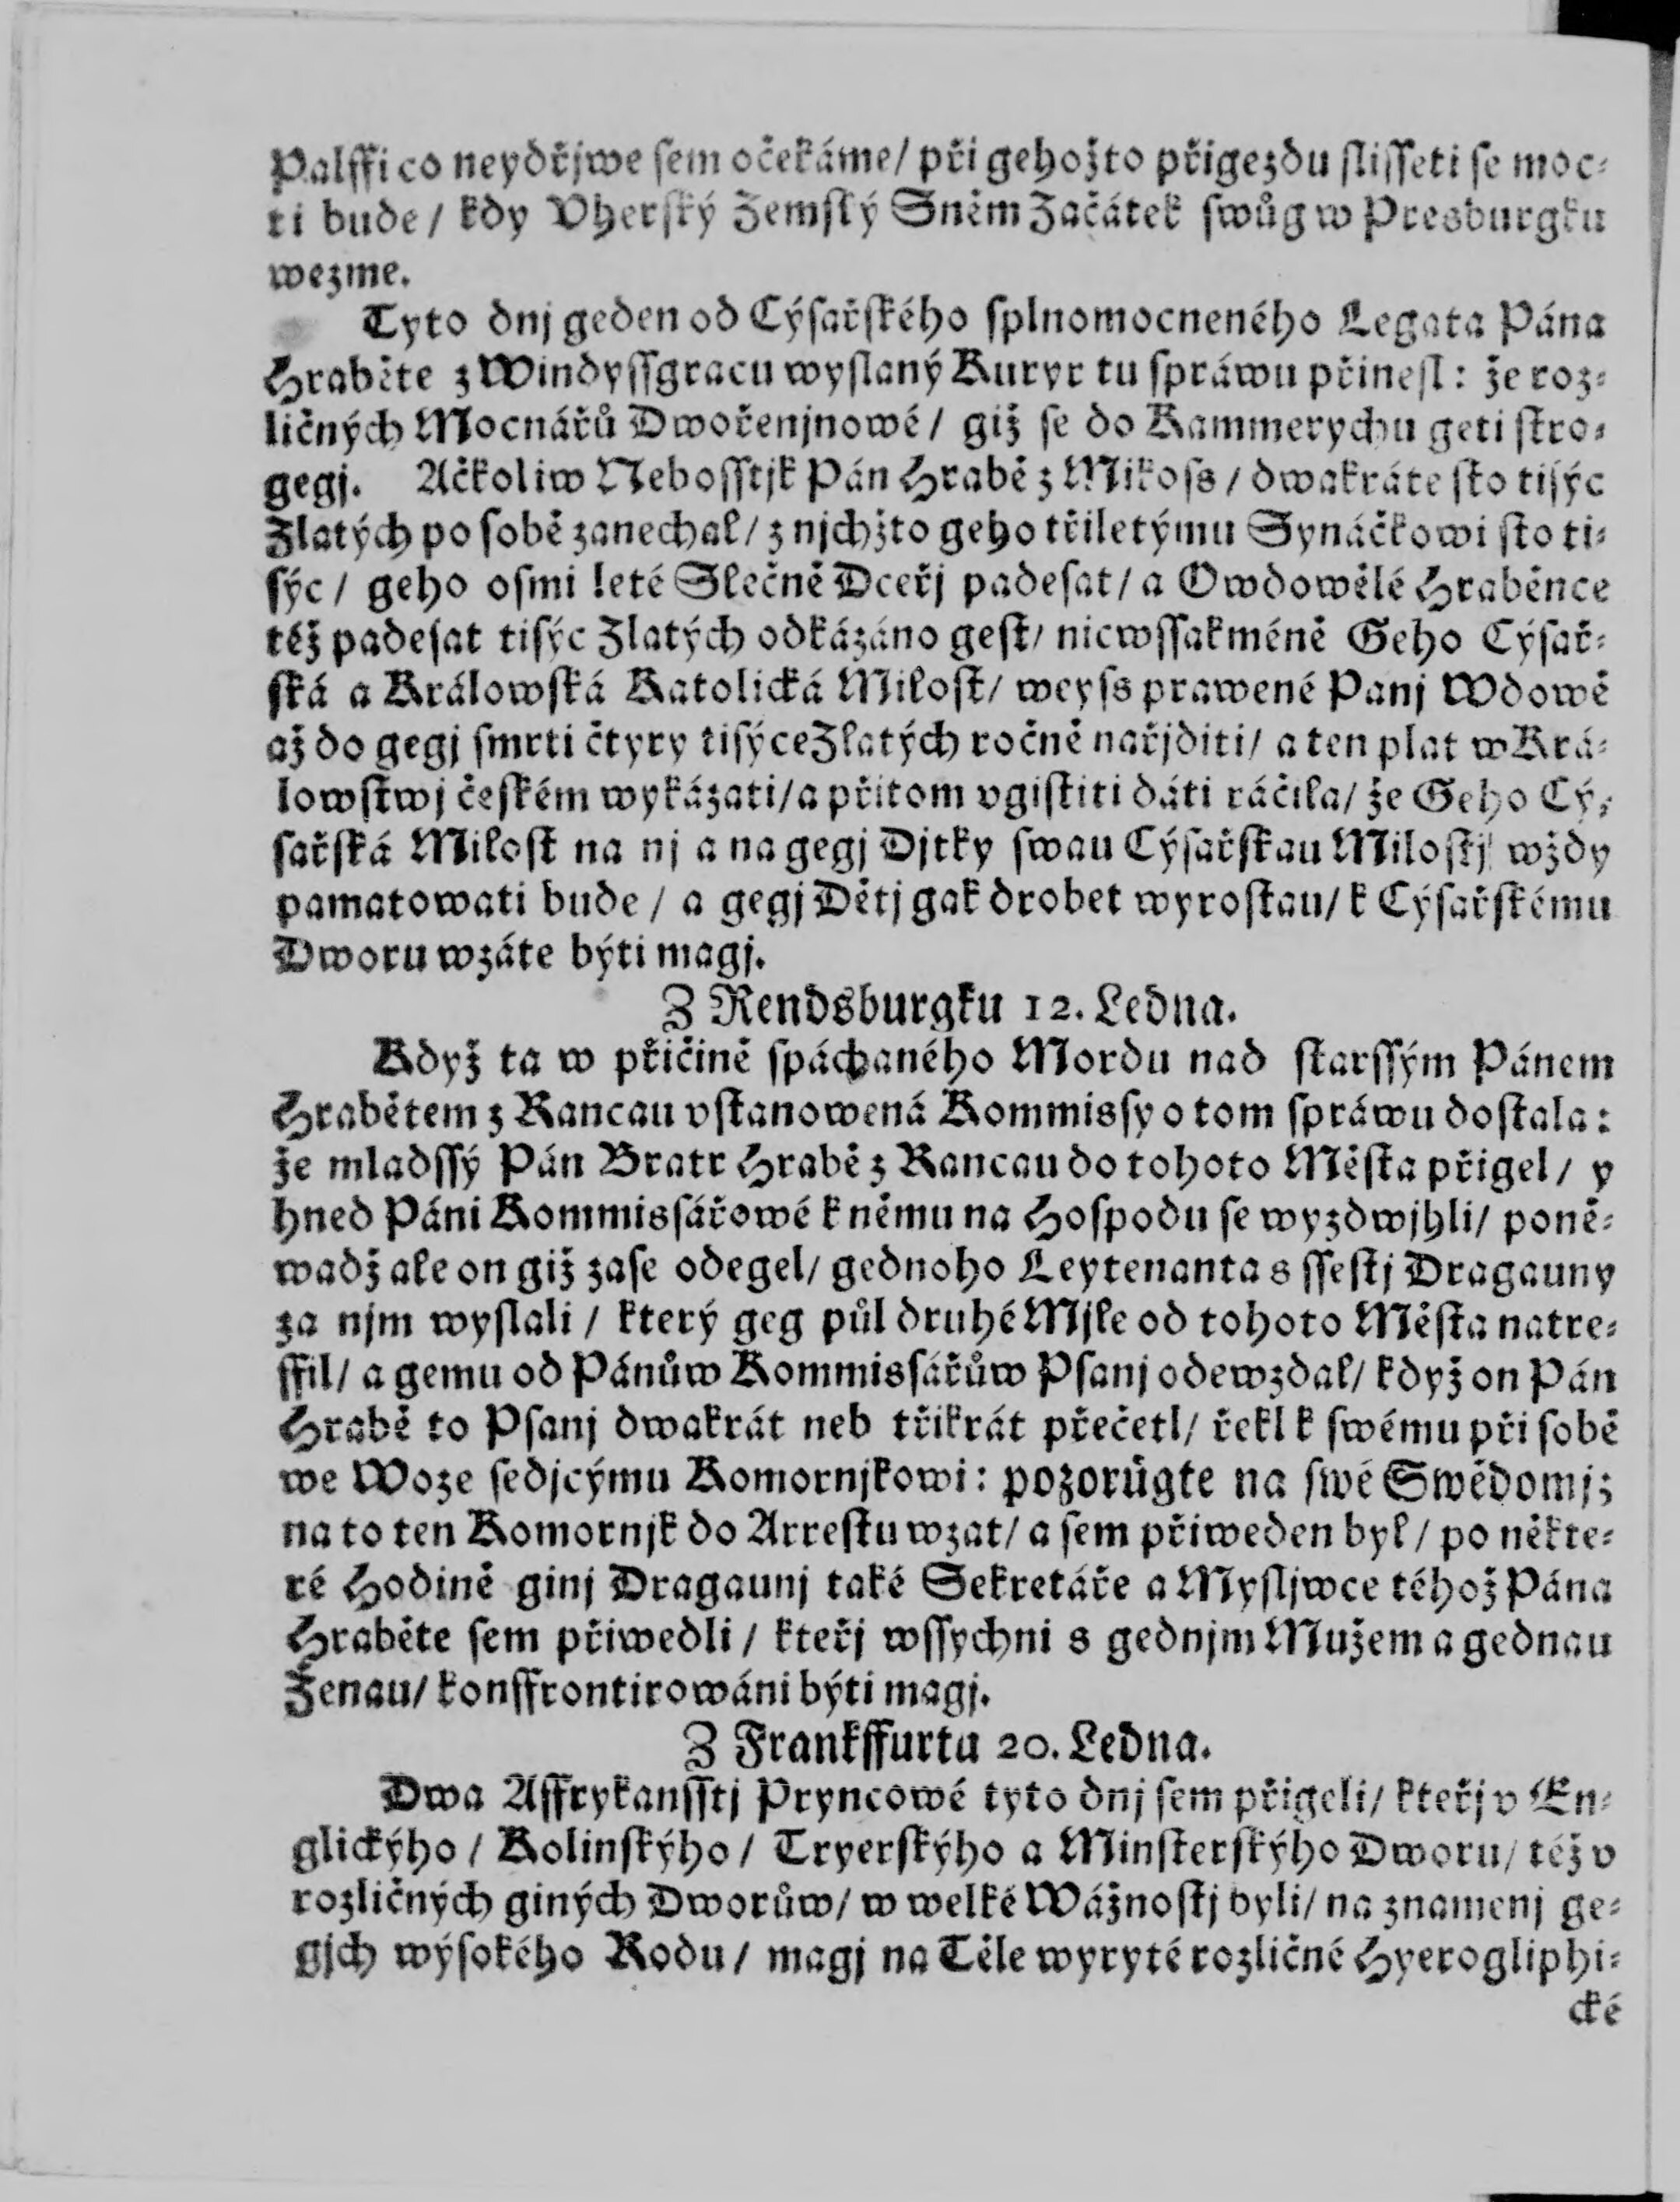 Palffi co neydřjwe sem očekáme / při gehožto přigezdu slisseti se moc⸗
ti bude / kdy Vherský Zemský Sněm Začátek swůg w Presburgku
wezme.
Tyto dnj geden od Cýsařského splnomocneného Legata Pána
Hraběte z Windyssgracu wyslaný Kuryr tu spráwu přinesl: že roz⸗
ličných Mocnářů Dwořenjnowé / giž se do Kammerychu geti stro⸗
gegj. Ačkoliw Nebosstjk Pán Hrabě z Mikoss / dwakráte sto tisýc
Zlatých po sobě zanechal / z njchžto geho třiletýmu Synáčkowi sto ti⸗
sýc / geho osmi leté Slečně Dceřj padesat / a Owdowělé Hraběnce
též padesat tisýc Zlatých odkázáno gest / nicwssakméně Geho Cýsař⸗
ská a Králowská Katolická Milost / weyss prawené Panj Wdowě
až do gegj smrti čtyry tisýce Zlatých ročně nařjditi / a ten plat w Krá⸗
lowstwj českém wykázati / a přitom vgistiti dáti ráčila / že Geho Cý⸗
sařská Milost na nj a na gegj Djtky swau Cýsařskau Milostj wždy
pamatowati bude / a gegj Dětj gak drobet wyrostau / k Cýsařskému
Dworu wzáte býti magj.
Z Rendsburgku 12. Ledna.
Když ta w přičině spáchaného Mordu nad starssým Pánem
Hrabětem z Rancau vstanowená Kommissy o tom spráwu dostala:
že mladssý Pán Bratr Hrabě z Rancau do tohoto Města přigel / y
hned Páni Kommissářowé k němu na Hospodu se wyzdwjhli / poně⸗
wadž ale on giž zase odegel / gednoho Leytenanta s ssestj Dragauny
za njm wyslali / který geg půl druhé Mjle od tohoto Města natre⸗
ffil / a gemu od Pánůw Kommissářůw Psanj odewzdal / když on Pán
Hrabě to Psanj dwakrát neb třikrát přečetl / řekl k swému při sobě
we Woze sedjcýmu Komornjkowi: pozorůgte na swé Swědomj;
na to ten Komornjk do Arrestu wzat / a sem přiweden byl / po někte⸗
ré Hodině ginj Dragaunj také Sekretáře a Mysljwce téhož Pána
Hraběte sem přiwedli / kteřj wssychni s gednjm Mužem a gednau
Ženau / konffrontirowáni býti magj.
Z Frankffurtu 20. Ledna.
Dwa Affrykansstj Pryncowé tyto dnj sem přigeli / kteřj v En⸗
glickýho / Kolinskýho / Tryerskýho a Minsterskýho Dworu / též v
rozličných giných Dworůw / w welké Wážnostj byli / na znamenj ge⸗
gjch wýsokého Rodu / magj na Těle wyryté rozličné Hyerogliphi⸗
cké